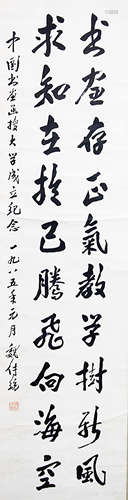 书画存正氣教学樹新風
求知在於己騰飛向海空
中国书画函授大学成立纪念 一九八五年元月 魏传统